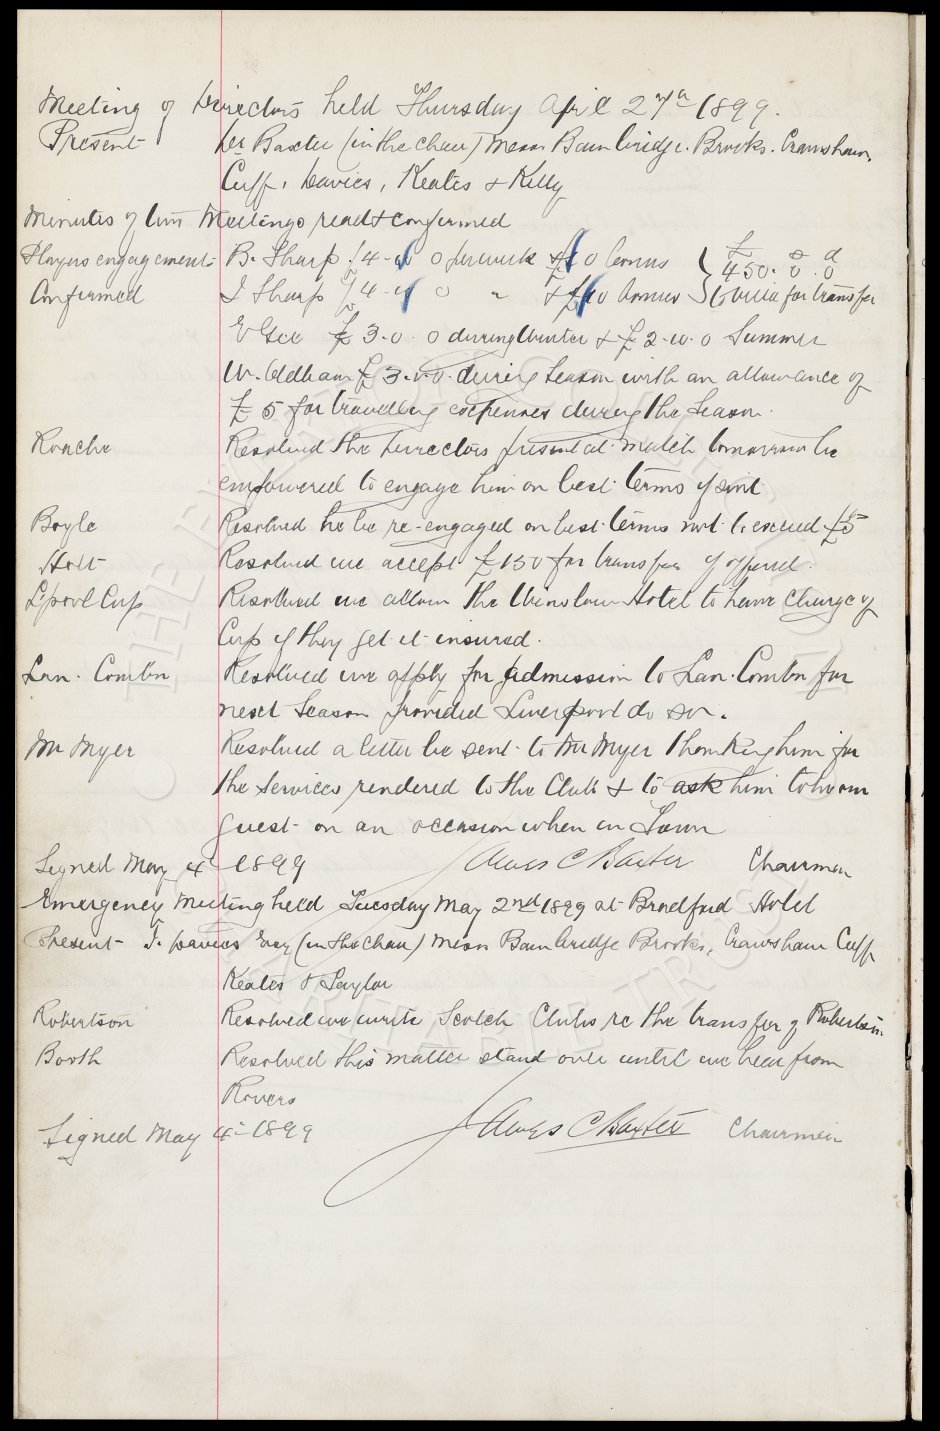 Meeting of Directors held Thursday April 27th 1899.
Present Dr Baxter (in the chair) Messrs Bainbridge. Brooks. Crawshaw,
Cuff, Davies, Keates & Kelly
Minutes of two Meetings read & confirmed
Players engagements B. Sharp £4-0-0 per week & £10 bonus £ s d
Confirmed J Sharp £4-0-0 " & £10 bonus } 450.0.0 to Villa for transfer
E Gee £3.0.0 during Winter & £2-10.0 Summer
W. Oldham £3.0.0. during Season with an allowance of
£5 for travelling expenses during the Season.
Roache Resolved the Directors present at match tomorrow be
empowered to engage him on best terms possible
Boyle Resolved he be re-engaged on best terms not to exceed £5
Holt Resolved we accept £150 for transfer if offered.
L'pool Cup Resolved we allow the Winslow Hotel to have charge of
Cup if they get it insured.
Lan. Combn Resolved we apply for admission to Lan. Combn for
next Season provided Liverpool do so.
Mr Myer Resolved a letter be sent to Mr Myer thanking him for
the services rendered to the Club & to ask him to be our
guest on an occasion when in Town
Signed May 4th 1899 James C Baxter Chairman
Emergency Meeting held Tuesday May 2nd 1899 at Bradford Hotel
Present J. Davies Esq (in the chair) Messrs Bainbridge Brooks, Crawshaw Cuff
Keates & Taylor
Robertson Resolved we write Scotch Clubs re the transfer of Robertson
Booth Resolved this matter stand over until we hear from
Rovers
Signed May 4th 1899 James C Baxter Chairman
THE EVERTON COLLECTION CHARITABLE TRUST